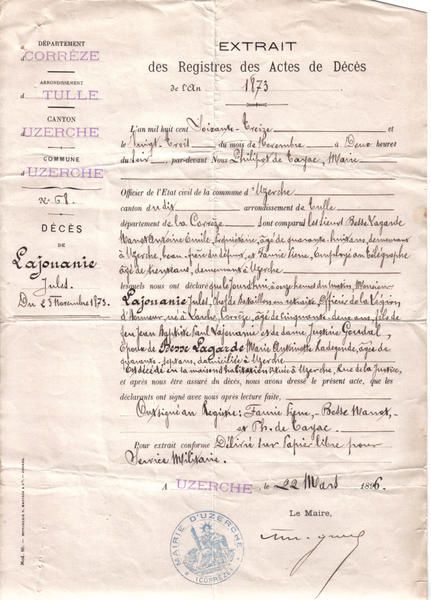 DÉPARTEMENT
d CORRÈZE
ARRONDISSEMENT
d TULLE
CANTON
d'UZERCHE
COMMUNE
d'UZERCHE
N° 51
DÉCÈS
DE
Lajouanie
Jules
Du 23 Novembre 1873.
EXTRAIT
des Registres des Actes de Décès
de l'An 1873
L'an mil huit cent Soixante-Treize et
le Vingt Trois du mois de Novembre à Deux heures
du Soir, par-devant Nous Philipot de Cayac, Maire
Officier de l'Etat civil de la commune d'Uzerche
canton du dit arrondissement de Tulle
département de la Corrèze, sont comparus les sieurs Besse Lagarde
Antoine Emile, âgé de quarante huit ans, demeurant
à Uzerche, beau-frère du défunt, et Pierre, Employé au télégraphe
âgé de ans, demeurant à Uzerche
lesquels nous ont déclaré que le jour d'hui, à onze heures du matin, Monsieur
Lajouanie Jules, Chef de Bataillon en retraite, Officier de la Légion
d'Honneur, né à Corrèze, âgé de cinquante-deux ans, fils de
feu Jean Baptiste Paul Lajouanie et de dame Justine
Epoux de Besse Lagarde Marie Antoinette Radegonde, âgée de
quarante-sept ans, domiciliée à Uzerche
Est décédé en la maison d'habitation située à Uzerche, Rue de la Justice,
et après nous être assuré du décès, nous avons dressé le présent acte, que les
déclarants ont signé avec nous après lecture faite,
Ont signé au Registre: Pierre, Besse
et Ph. de Cayac.
Pour extrait conforme Délivré sur Papier libre pour
Service Militaire.
A UZERCHE, le 22 Mars 1896.
Le Maire,
MAIRIE D'UZERCHE
(CORRÈZE)